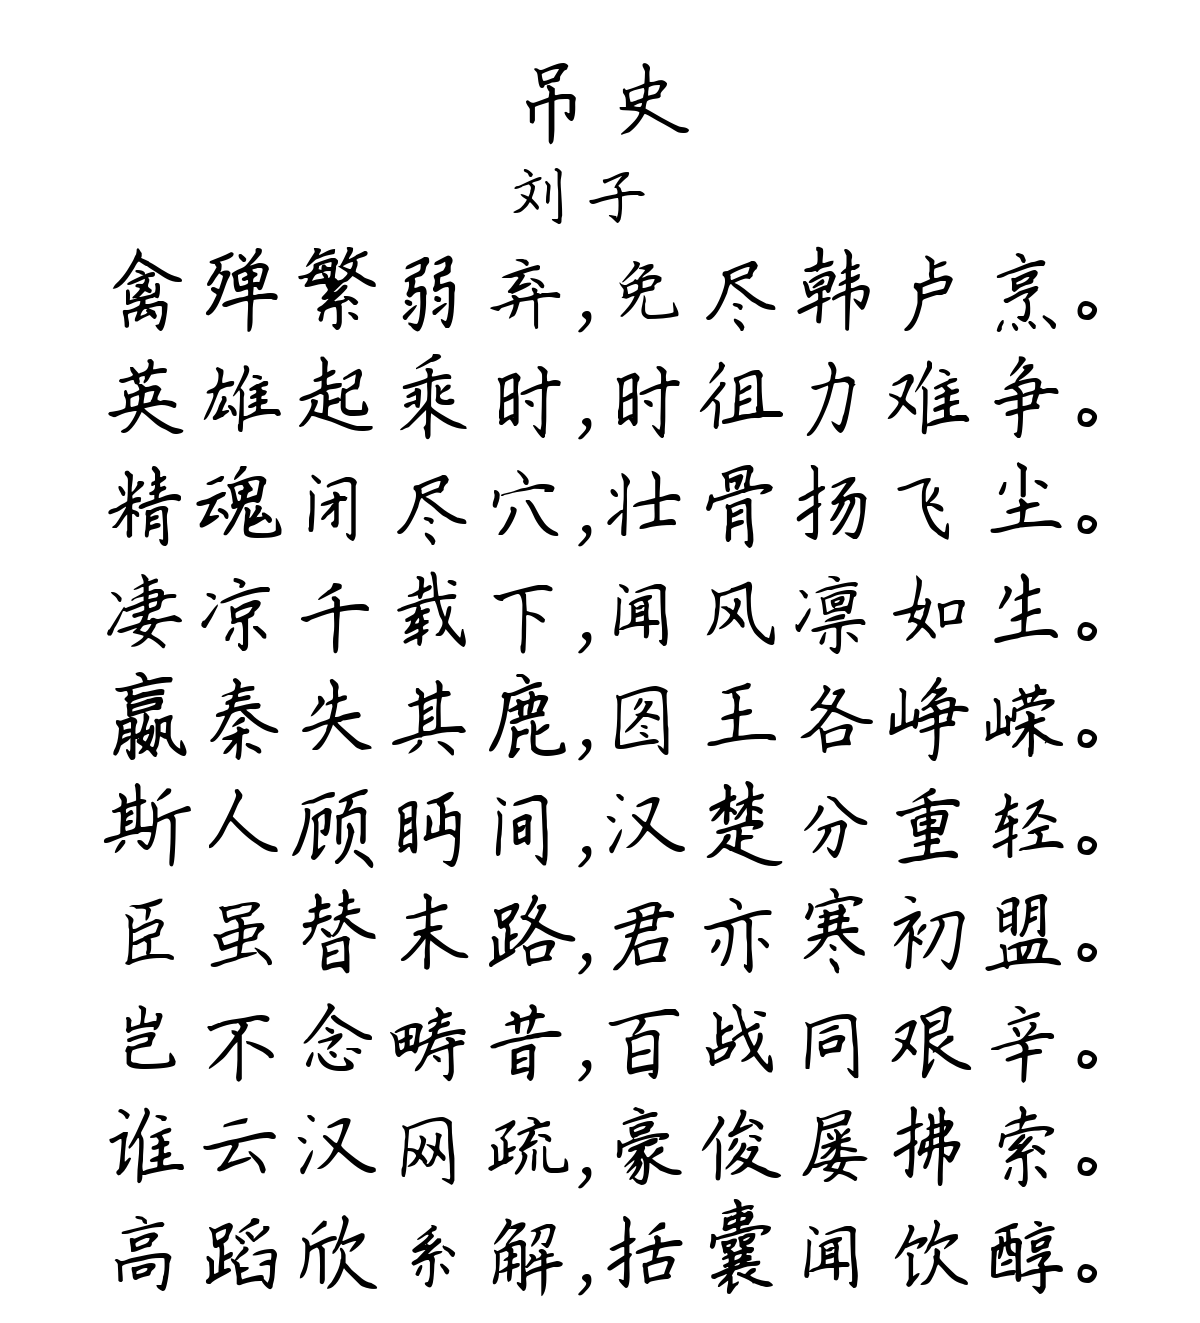 吊史
刘子
禽殚繁弱弃,免尽韩卢烹。
英雄起乘时,时徂力难争。
精魂闭尽穴,壮骨扬飞尘。
凄凉千载下,闻风凛如生。
嬴秦失其鹿,图王各峥嵘。
斯人顾眄间,汉楚分重轻。
臣虽替末路,君亦寒初盟。
岂不念畴昔,百战同艰辛。
谁云汉网疏,豪俊屡拂索。
高蹈欣系解,括囊闻饮醇。